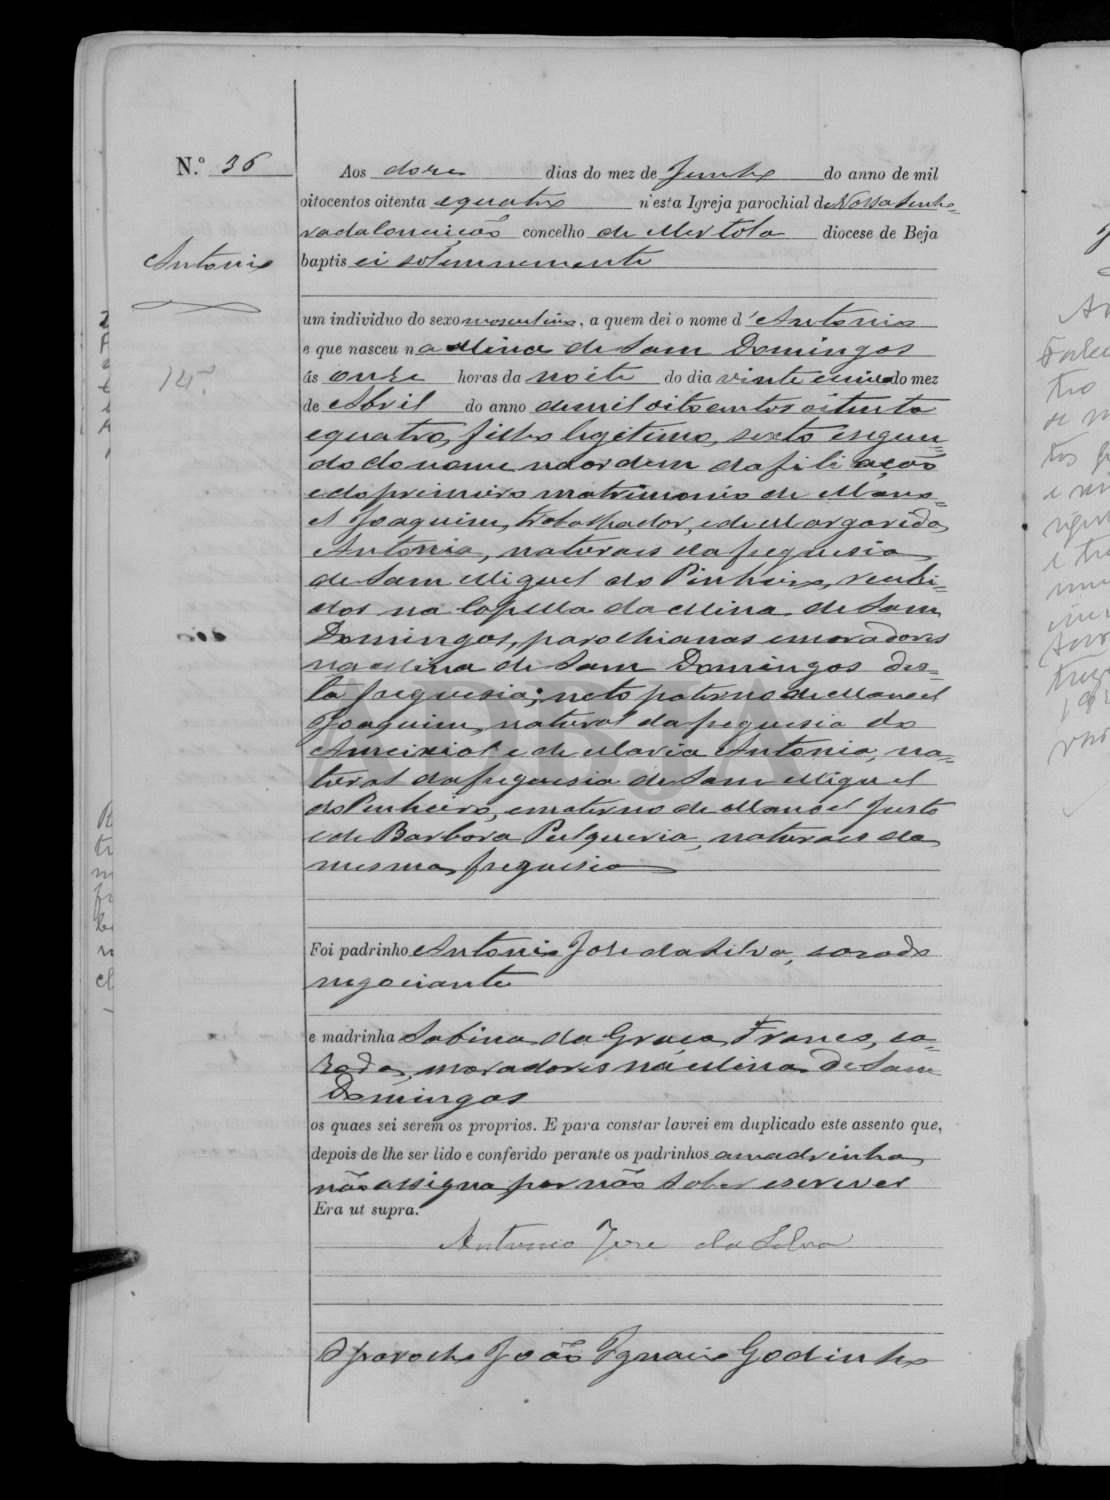 N.º 36
Aos doze dias do mez de Junho do anno de mil
oitocentos oitenta equatro n'esta Igreja parochial de Nossa Senho=
ra da Conceição concelho de Mertola diocese de Beja
Antonio
baptisei solemnemente
um individuo do sexo masculino, a quem dei o nome d'Antonio
e que nasceu na Mina de Sam Domingos
ás onze horas da noite do dia vinte e cinco do mez
de Abril do anno de mil oitocentos oitenta
equatro, filho legitimo, sexto esegun=
do do nome na ordem da filiação
e do primeiro matrimonio de Mano=
el Joaquim, trabalhador, e de Margarida
Antonia, naturaes da freguesia
de Sam Miguel do Pinheiro, recebi=
dos na Capella da Mina de Sam
Domingos, parochianos e moradores
na Mina de Sam Domingos des=
ta freguesia; neto paterno de Manoel
Joaquim, natural da freguesia do
Ameixial e de Maria Antonia, na=
tural da freguesia de Sam Miguel
do Pinheiro, e materno de Manoel Justo
e de Barbora Pulqueria, naturaes da
mesma freguesia
Foi padrinho Antonio Jose da Silva, casado
negociante
e madrinha Sabina da Graça Franco, ca=
zada, moradores na Mina de Sam
Domingos
os quaes sei serem os proprios. E para constar lavrei em duplicado este assento que,
depois de lhe ser lido e conferido perante os padrinhos a madrinha
não assigna por não saber escrever
Era ut supra.
Antonio Jose da Silva
O parocho João Ignacio Godinho